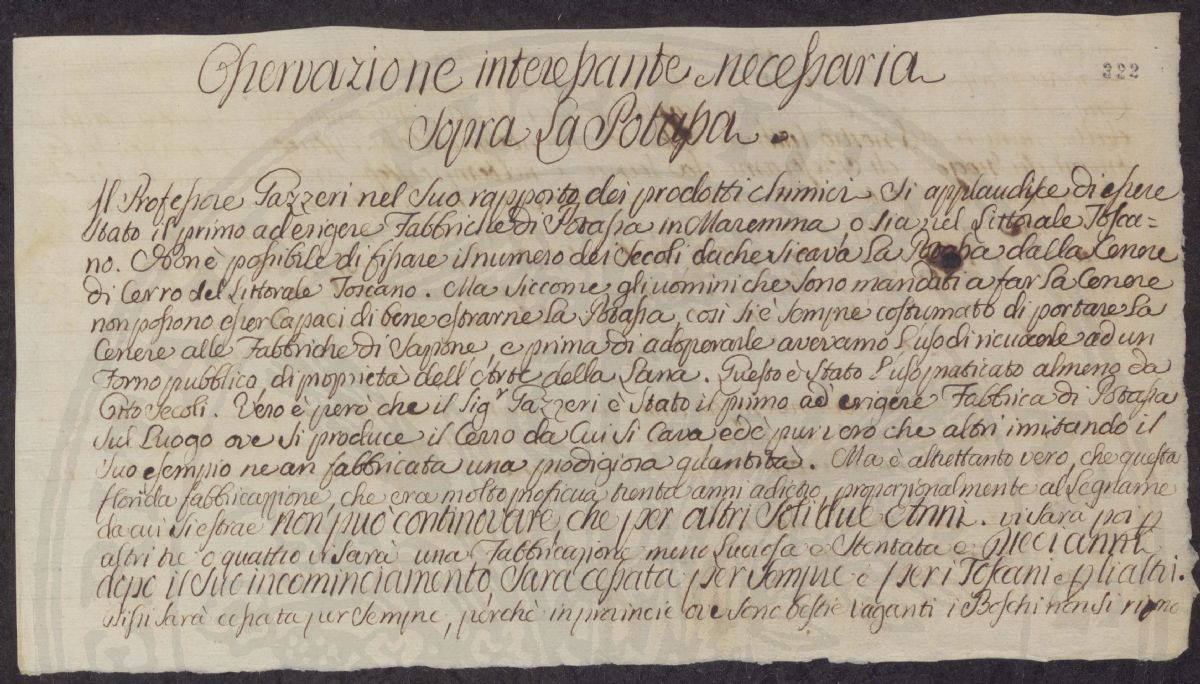 Osservazione interessante necessaria
322
Sopra La Potassa.
Il Professore Gazzeri nel Suo rapporto dei prodotti chimici Si applaudisce di essere
Stato il primo ad erigere Fabbriche di Potassa in Maremma, o sia nel Littorale Tosca-
no. Non è possibile di fissare il numero dei Secoli da che si cava La Potassa dalla Cenere
di Cerro del Littorale Toscano. Ma Siccome gli uomini che sono mandati a far La Cenere
non possono esser Capaci di bene estrarne La Potassa, così si è Sempre costumato di portare La
Cenere alle Fabbriche di Sapone, e prima di adoperarle averamo L'uso di ricuocerle ad un
Forno pubblico, di proprietà dell'Arte della Lana. Questo è Stato L'uso praticato almeno da
Otto Secoli. Vero è però che il Sigr Gazzeri è Stato il primo ad erigere Fabbrica di Potassa
Sul Luogo ove Si produce il Cerro da Cui Si Cava ed è pur vero che altri imitando il
Suo esempio ne an fabbricata una prodigiosa quantità. Ma è altrettanto vero, che questa
florida fabbricazione, che era molto proficua trenta anni adietro, proporzionalmente al Legname
da cui si estrae non può continovare che per altri Soli due Anni. vi sarà poi p
altri tre o quattro vi Sarà una Fabbricazione meno Lucrosa e Stentata e Dieci anni
dopo il Suo incominciamento, Sarà cessata per Sempre e per i Toscani e p gli altri.
Sarà cessata per Sempre, perchè in provincie ove sono bestie vaganti i Boschi non si ripro